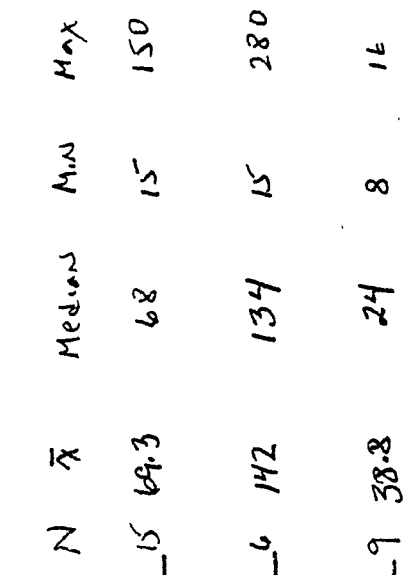 N x̄ Median Min Max
15 69.3 68 15 150
6 142 134 15 280
9 38.8 24 8